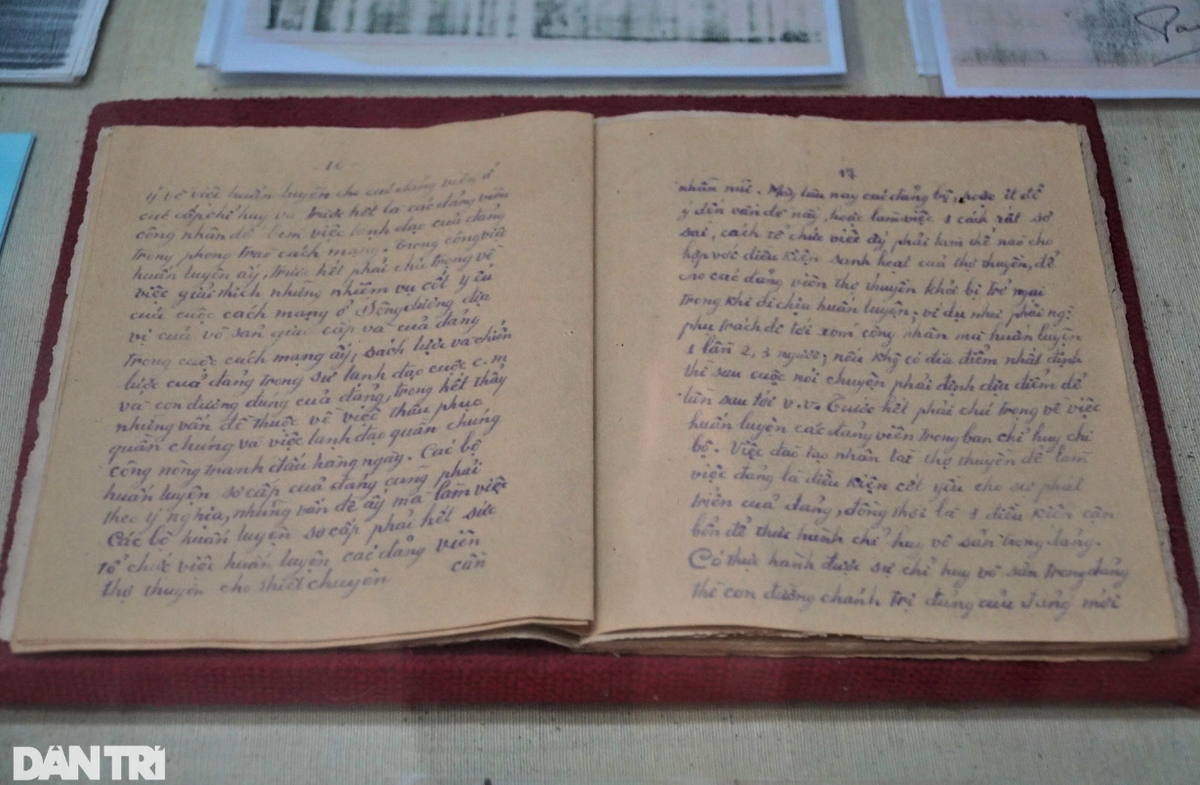 - 16 -
ý về việc huấn luyện cho các đảng viên ở
các cấp chỉ huy và trước hết là các đảng viên
công nhân để làm việc lãnh đạo của đảng
trong phong trào cách mạng. Trong công việc
huấn luyện ấy, trước hết phải chú trọng về
việc giải thích những nhiệm vụ cốt yếu
của cuộc cách mạng ở Đông dương địa
vị của vô sản giai cấp và của đảng
trong cuộc cách mạng ấy, sách lược và chiến
lược của đảng trong sự lãnh đạo cuộc c.m
và con đường đúng của đảng, trong hết thảy
những vấn đề thuộc về việc thâu phục
quần chúng và việc lãnh đạo quần chúng
công nông tranh đấu hàng ngày. Các bộ
huấn luyện sơ cấp của đảng cũng phải
theo ý nghĩa, những vấn đề ấy mà làm việc
Các bộ huấn luyện sơ cấp phải hết sức
tổ chức việc huấn luyện các đảng viên
thợ thuyền cho thiết chuyên
cần
17
nhẫn nại. Mấy lâu nay các đảng bộ, hoặc ít để
ý đến vấn đề này, hoặc làm việc 1 cách rất sơ
sài, cách tổ chức việc ấy phải làm thế nào cho
hợp với điều kiện sanh hoạt của thợ thuyền, để
cho các đảng viên thợ thuyền khỏi bị trở ngại
trong khi đi chịu huấn luyện. ví dụ như phải ng:
phụ trách đi tới xóm công nhân mà huấn luyện
1 lần 2, 3 người; nếu khg có địa điểm nhất định
thì sau cuộc nói chuyện phải định địa điểm để
lần sau tới v.v. Trước hết phải chú trọng về việc
huấn luyện các đảng viên trong ban chỉ huy chi
bộ. Việc đào tạo nhân tài thợ thuyền để làm
việc đảng là điều kiện cốt yếu cho sự phát
triển của đảng, đồng thời là 1 điều kiện căn
bổn để thực hành chỉ huy vô sản trong đảng.
Có thực hành được sự chỉ huy vô sản trong đảng
thì con đường chánh trị đúng của đảng mới
DÂN TRÍ